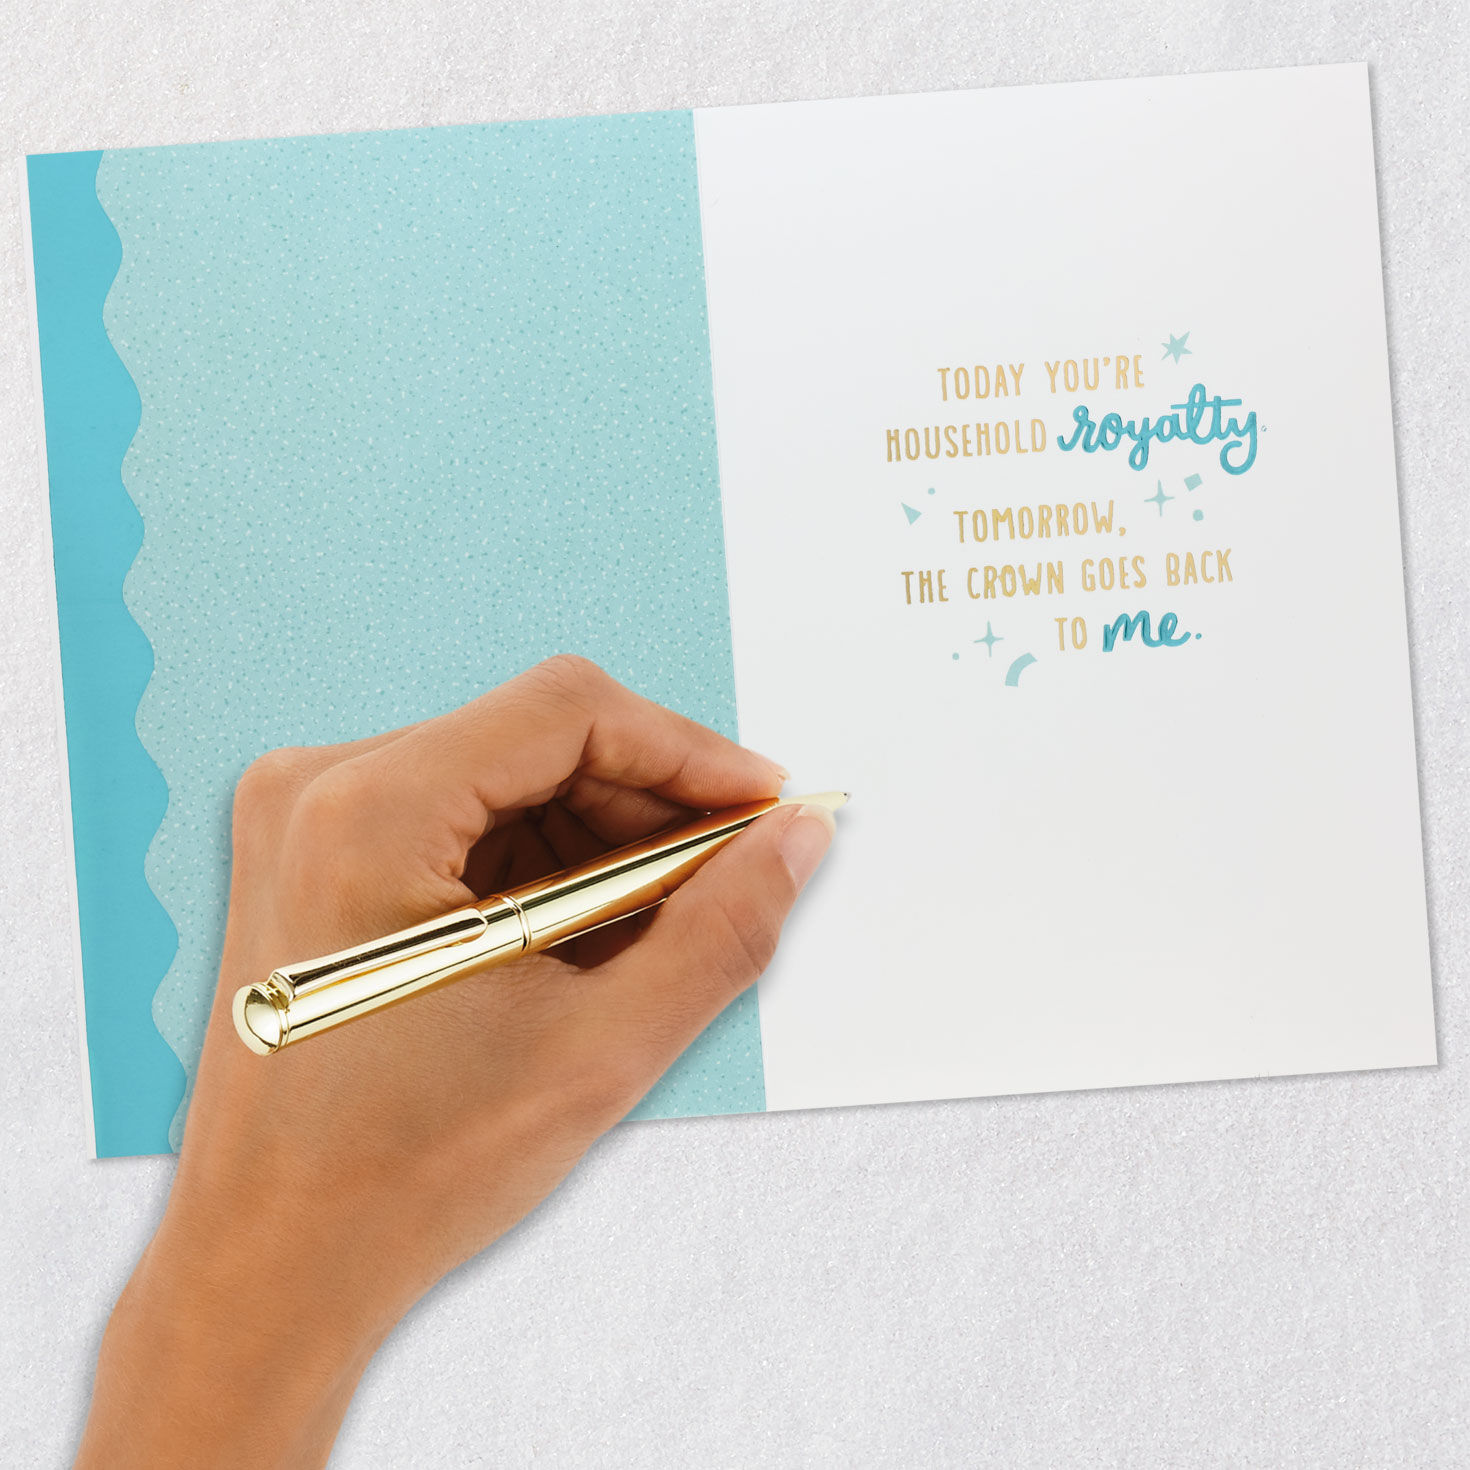 TODAY YOU'RE
HOUSEHOLD royalty.
TOMORROW,
THE CROWN GOES BACK
TO me.